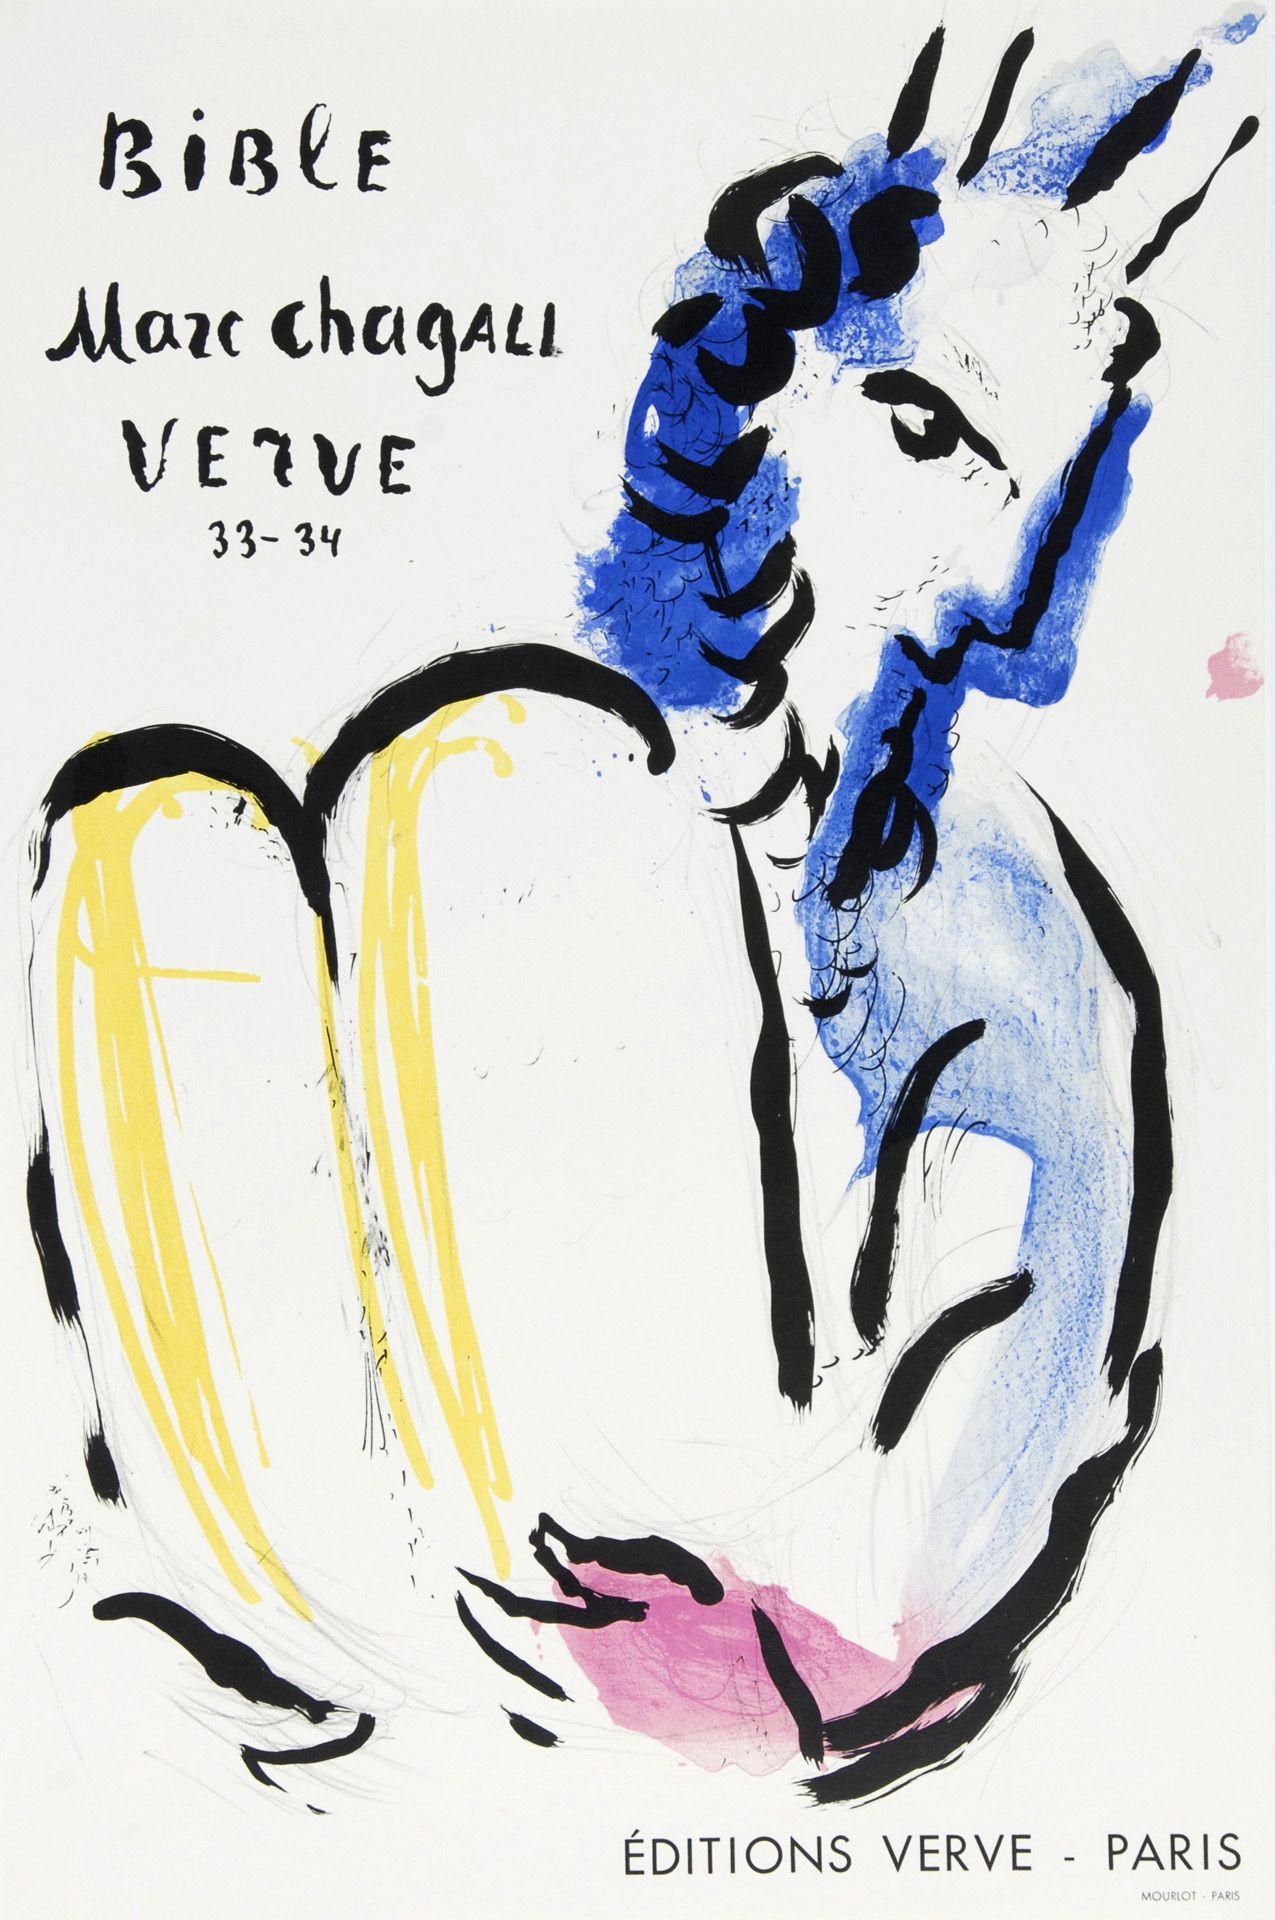 BiBlE
Marc chagALL
VErVE
33-34
ÉDITIONS VERVE - PARIS
MOURLOT - PARIS